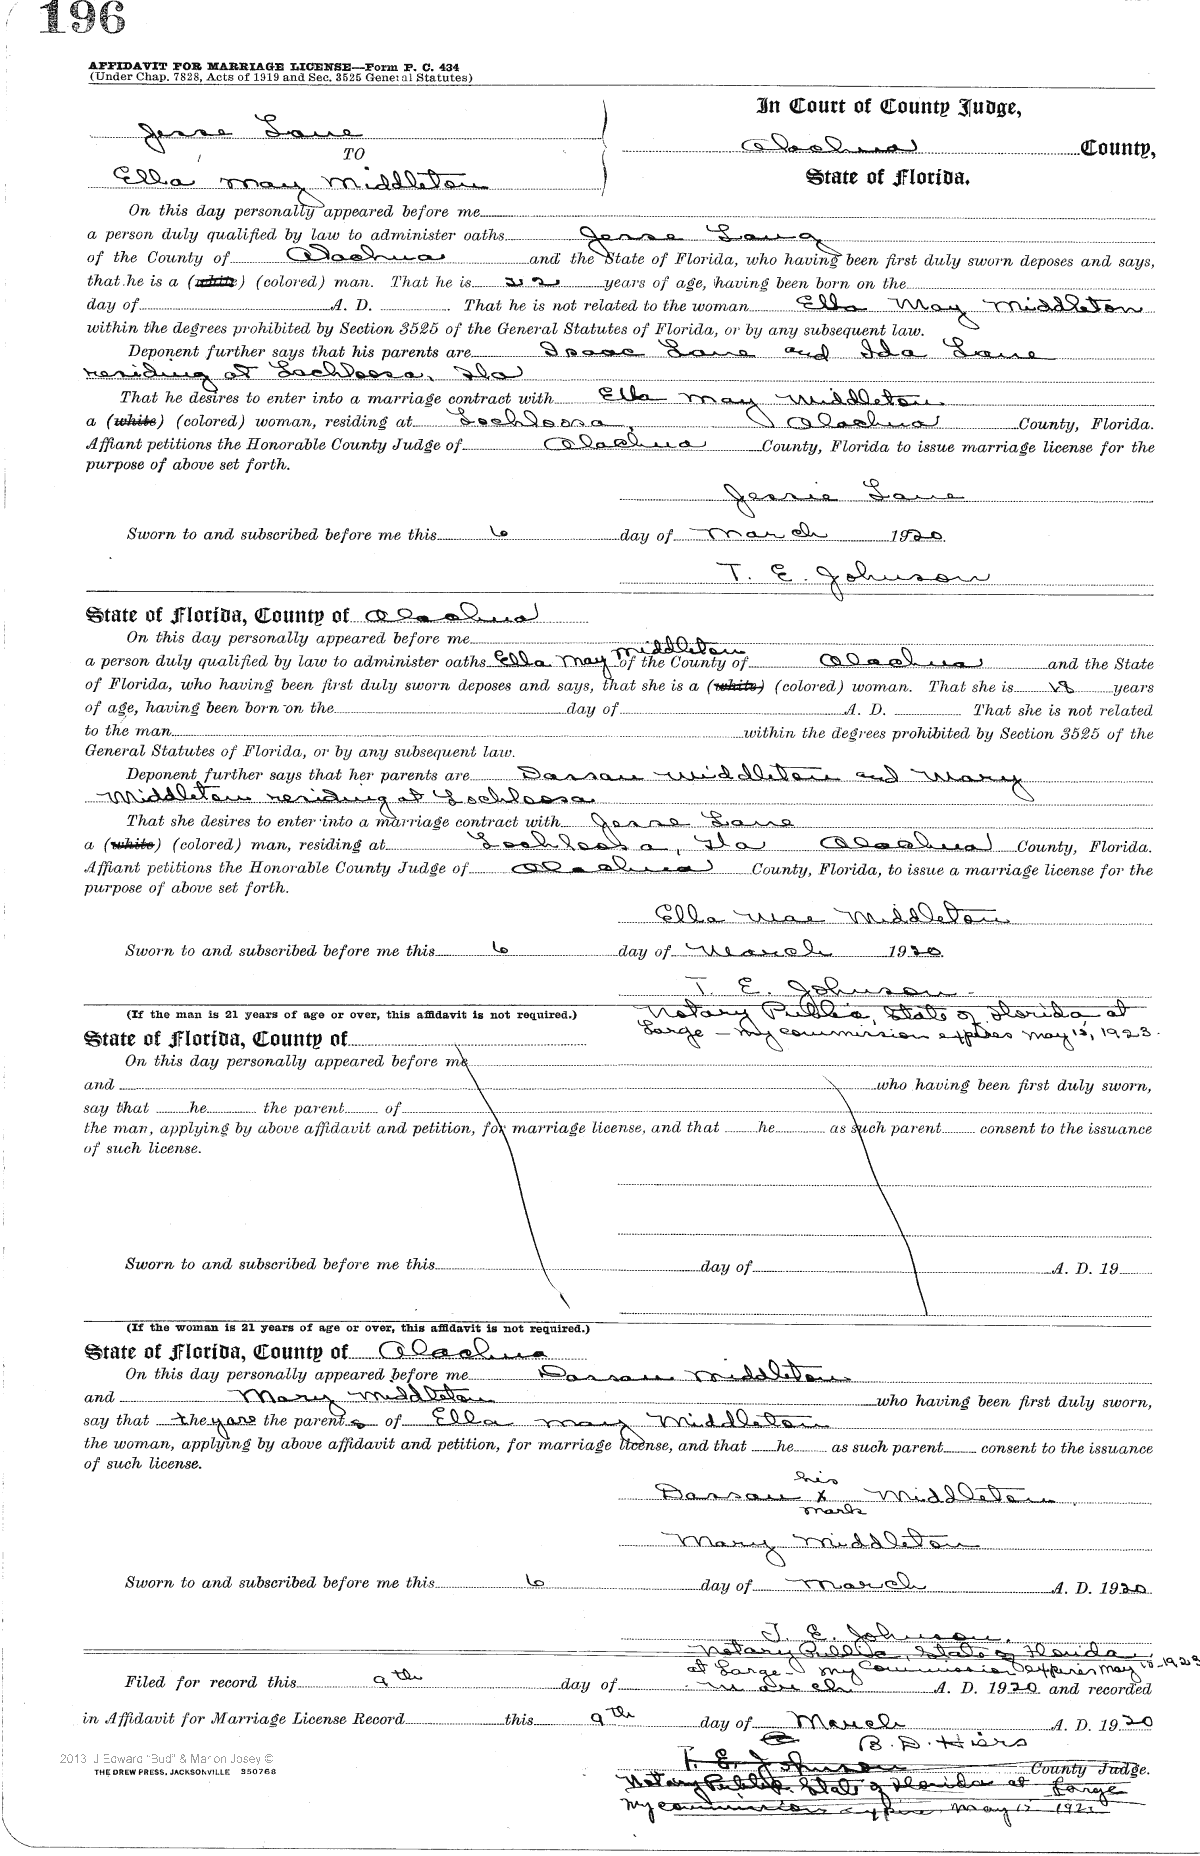 196
AFFIDAVIT FOR MARRIAGE LICENSE—Form P. C. 434
(Under Chap. 7828, Acts of 1919 and Sec. 3525 General Statutes)
In Court of County Judge,
Jesse Lane
Alachua County,
TO
Ella May Middleton
State of Florida.
On this day personally appeared before me
a person duly qualified by law to administer oaths Jesse Lang
of the County of Alachua and the State of Florida, who having been first duly sworn deposes and says,
that he is a (white) (colored) man. That he is 32 years of age, having been born on the
day of A. D. That he is not related to the woman Ella May Middleton
within the degrees prohibited by Section 3525 of the General Statutes of Florida, or by any subsequent law.
Deponent further says that his parents are Isaac Lane and Ida Lane
residing at Lochloosa, Fla
That he desires to enter into a marriage contract with Ella May Middleton
a (white) (colored) woman, residing at Lochloosa, Alachua County, Florida.
Affiant petitions the Honorable County Judge of Alachua County, Florida to issue marriage license for the
purpose of above set forth.
Jessie Lane
Sworn to and subscribed before me this 6 day of March 1920
T. E. Johnson
State of Florida, County of Alachua
On this day personally appeared before me
a person duly qualified by law to administer oaths Ella May Middleton of the County of Alachua and the State
of Florida, who having been first duly sworn deposes and says, that she is a (white) (colored) woman. That she is 18 years
of age, having been born on the day of A. D. That she is not related
to the man within the degrees prohibited by Section 3525 of the
General Statutes of Florida, or by any subsequent law.
Deponent further says that her parents are Dassau Middleton and Mary
Middleton residing at Lochloosa
That she desires to enter into a marriage contract with Jesse Lane
a (white) (colored) man, residing at Lochloosa, Fla Alachua County, Florida.
Affiant petitions the Honorable County Judge of Alachua County, Florida, to issue a marriage license for the
purpose of above set forth.
Ella Mae Middleton
Sworn to and subscribed before me this 6 day of March 1920
T. E. Johnson
Notary Public, State of Florida at
Large — My commission expires May 15, 1923.
(If the man is 21 years of age or over, this affidavit is not required.)
State of Florida, County of
On this day personally appeared before me
and who having been first duly sworn,
say that he the parent of
the man, applying by above affidavit and petition, for marriage license, and that he as such parent consent to the issuance
of such license.
Sworn to and subscribed before me this day of A. D. 19
(If the woman is 21 years of age or over, this affidavit is not required.)
State of Florida, County of Alachua
On this day personally appeared before me Dassau Middleton
and Mary Middleton who having been first duly sworn,
say that they are the parents of Ella May Middleton
the woman, applying by above affidavit and petition, for marriage license, and that he as such parent consent to the issuance
of such license.
his
Dassau x Middleton
mark
Mary Middleton
Sworn to and subscribed before me this 6 day of March A. D. 1920
T. E. Johnson,
Notary Public, State of Florida
at Large - My Commission expires May 15-1923
Filed for record this 9th day of March A. D. 1920 and recorded
in Affidavit for Marriage License Record this 9th day of March A. D. 1920
B. D. Hiers
T. E. Johnson County Judge.
Notary Public State of Florida at Large
My commission expires May 15 192
2013 J Edward "Bud" & Marion Josey ©
THE DREW PRESS, JACKSONVILLE 350768